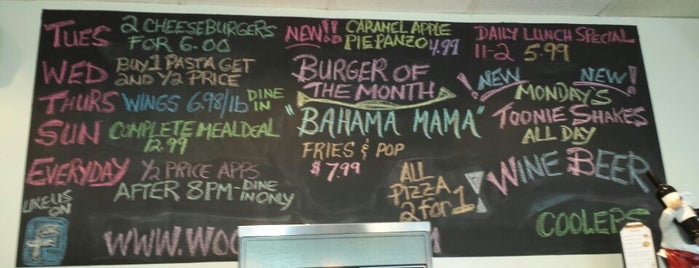 TUES 2 CHEESEBURGERS
FOR 6.00
WED BUY 1 PASTA GET
2ND 1/2 PRICE
THURS WINGS 6.98/lb DINE
IN
SUN COMPLETE MEAL DEAL
12.99
EVERYDAY 1/2 PRICE APPS
AFTER 8PM - DINE
IN ONLY
LIKE US
ON
f
NEW!! CARAMEL APPLE
PIE PANZO 4.99
BURGER OF
THE MONTH
"BAHAMA MAMA"
FRIES & POP
$7.99
ALL
PIZZA
2 for 1!
DAILY LUNCH SPECIAL
11-2 5.99
! NEW NEW !
MONDAY'S
TOONIE SHAKES
ALL DAY
WINE BEER
COOLERS